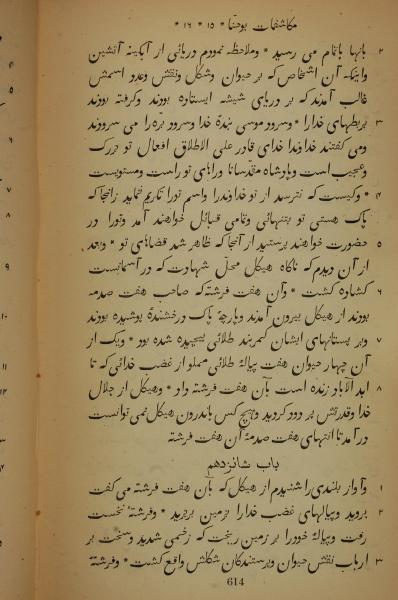 مکاشفات یوحنّا * ۱۵ * ۱۶ *
۲ بانها باتمام می رسید * وملاحظه نمودم دریائی از آبگینه آتشین
واینکه آن اشخاص که بر حیوان وشکل ونقش وعدد اسمش
غالب آمدند که بر دریای شیشه ایستاده بودند وگرفته بودند
۳ بربطهای خدا را * وسرود موسی بندهٔ خدا وسرود بره را می سرودند
ومی گفتند خداوندا خدای قادر علی الاطلاق افعال تو بزرگ
وعجیب است وپادشاه مقدسانا وراههای تو راست ومستویست
۴ * وکیست که نترسد از تو خداوندرا واسم تورا تکریم ننماید زآنجا که
پاک هستی تو بتنهائی وتمامی قبائل خواهند آمد وتورا در
۵ حضورت خواهند پرستید از آنجا که ظاهر شد قضاهای تو * وبعد
از آن دیدم که ناگاه هیکل محلّ شهادت که در آسمانست
۶ گشاده گشت * وآن هفت فرشته که صاحب هفت صدمه
بودند از هیکل بیرون آمدند وپارچهٔ پاک درخشندهٔ پوشیده بودند
۷ وبر پستانهای ایشان کمربند طلائی پیچیده شده بود * ویک از
آن چهار حیوان هفت پیالهٔ طلائی مملو از غضب خدائی که تا
۸ ابد الآباد زنده است بآن هفت فرشته داد * وهیکل از جلال
خدا وقدرتش پر دود گردید وهیچ کس باندرون هیکل نمی توانست
در آمد تا انتهای هفت صدمهٔ آن هفت فرشته
باب شانزدهم
۱ وآواز بلندی را شنیدم از هیکل که بآن هفت فرشته می گفت
۲ بروید وپیالهای غضب خدا را بزمین بریزید * وفرشتهٔ نخست
رفت وپیالهٔ خود را بر زمین ریخت که زخمی شدید وسخت بر
۳ ارباب نقش حیوان وپرستندگان شکلش واقع گشت * وفرشتهٔ
614